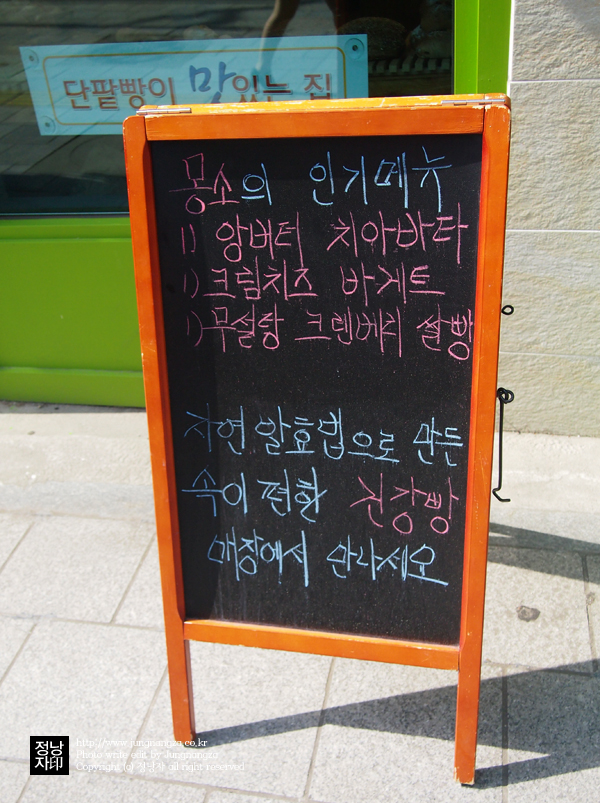 단팥빵이 맛있는 집
몽소의 인기메뉴
1) 앙버터 치아바타
1) 크림치즈 바게트
1) 무설탕 크렌베리 쌀빵
자연 발효법으로 만든
속이 편한 건강빵
매장에서 만나세요
정낭
자印